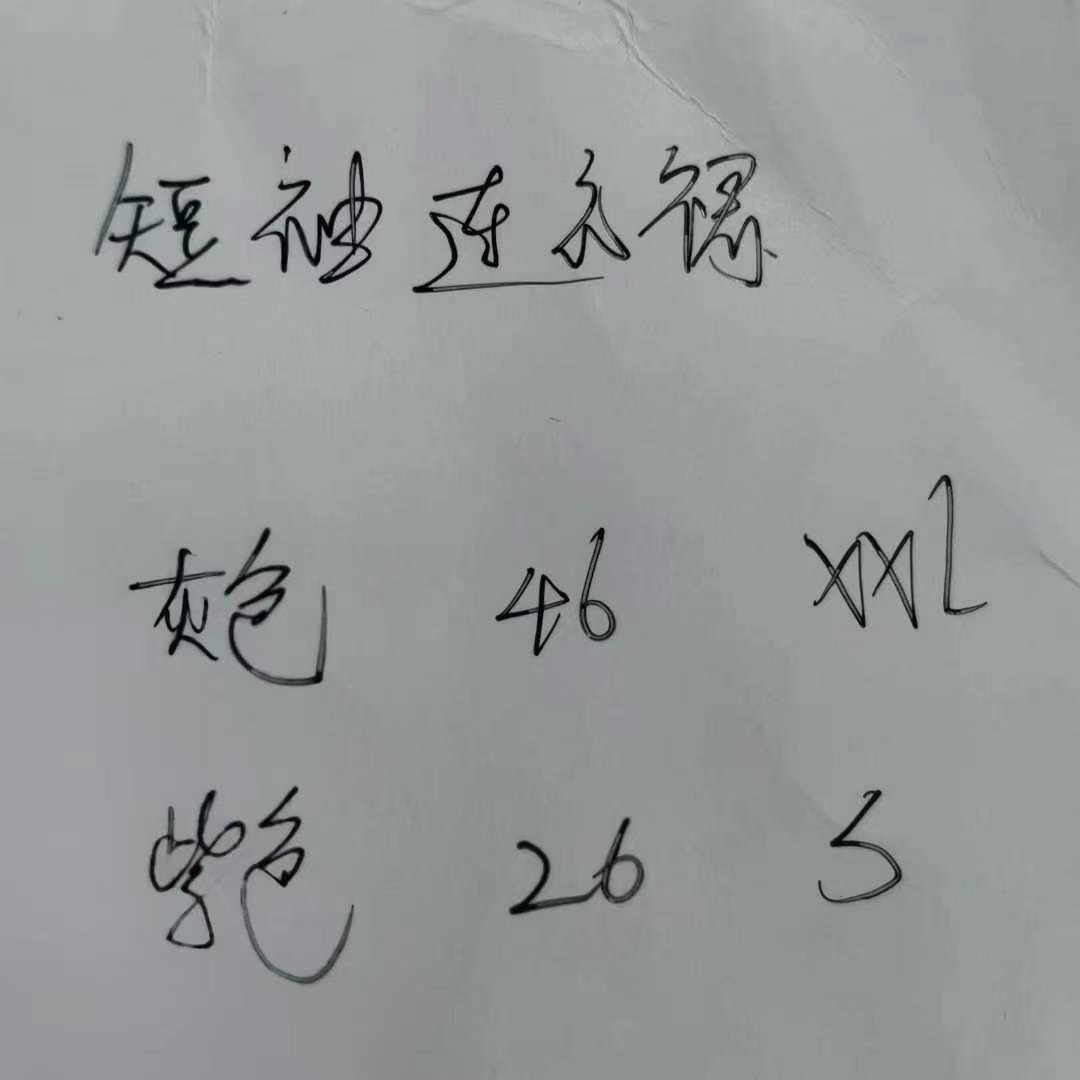 短袖连衣裙
灰色 46 XXL
紫色 26 S